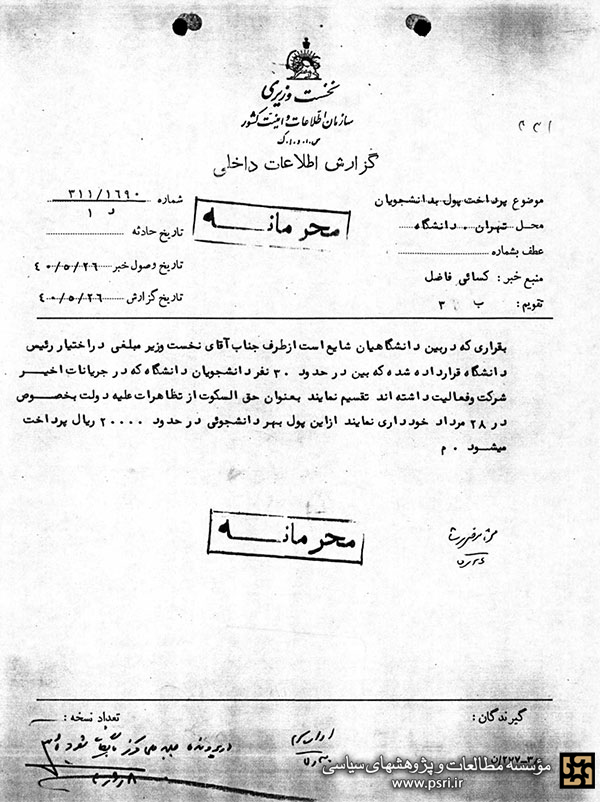 نخست وزیری
سازمان اطلاعات و امنیت کشور
س.ا.و.ا.ک
گزارش اطلاعات داخلی
موضوع پرداخت پول بدانشجویان
محل تهران . دانشگاه
عطف بشماره
منبع خبر: کسائی فاضل
تقویم: ب ۳
شماره ۳۱۱/۱۶۹۰
د ۱
تاریخ حادثه
تاریخ وصول خبر ۴۰/۵/۲۶
تاریخ گزارش ۴۰/۵/۲۶
محرمانه
بقراری که در بین دانشگاهیان شایع است از طرف جناب آقای نخست وزیر مبلغی در اختیار رئیس
دانشگاه قرار داده شده که بین در حدود ۳۰ نفر دانشجویان دانشگاه که در جریانات اخیر
شرکت وفعالیت داشته اند تقسیم نمایند بعنوان حق السکوت از تظاهرات علیه دولت بخصوص
در ۲۸ مرداد خودداری نمایند ازاین پول بهر دانشجوئی در حدود ۲۰۰۰۰ ریال پرداخت
میشود ۰ م
محرمانه
گیرندگان:
تعداد نسخه:
موسسه مطالعات و پژوهشهای سیاسی
www.psri.ir